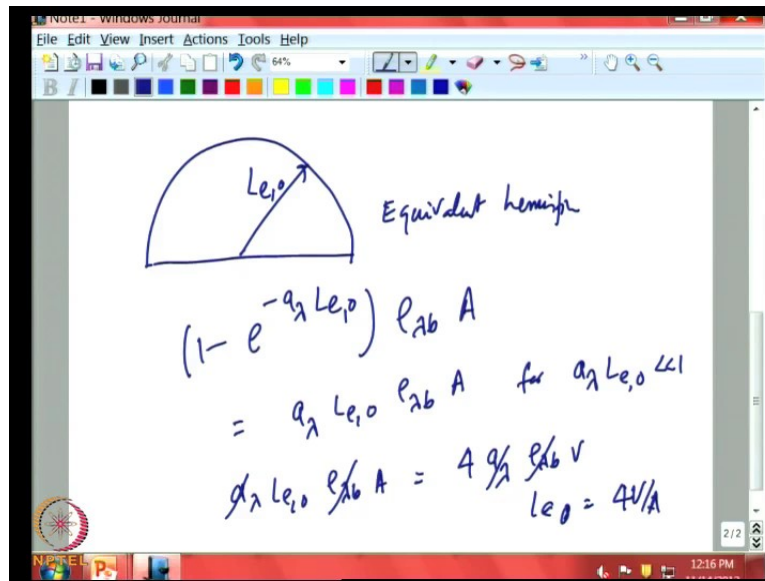 Note1 - Windows Journal
File Edit View Insert Actions Tools Help
64%
B I
Le,0
Equivalent
(1 - e^{-a_λ Le,0}) e_{λb} A
= a_λ Le,0 e_{λb} A for a_λ Le,0 <<1
a_λ Le,0 e_{λb} A = 4 a_λ e_{λb} V
Le0 = 4V/A
2/2
NPTEL
12:16 PM